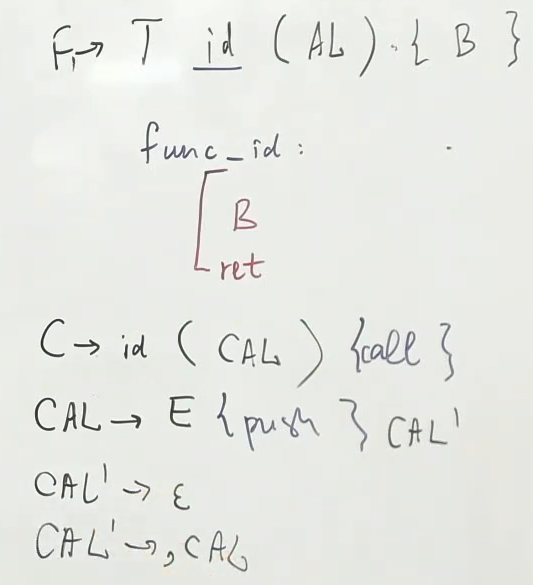 F₁→ T id ( AL ) . { B }
func_id :
B
ret
C → id ( CAL ) {call }
CAL → E { push } CAL'
CAL' → ε
CAL' → , CAL